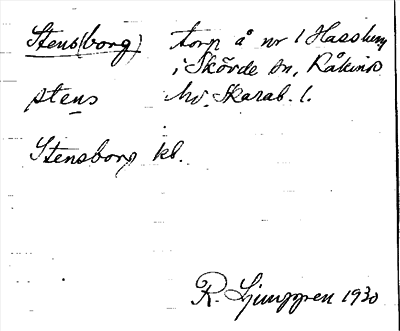 Stens(borg) torp å nr 1 Hasslum
i Skövde sn, Kåkinds
stens hd. Skarab. l.
Stensborg kb.
R. Ljunggren 1930